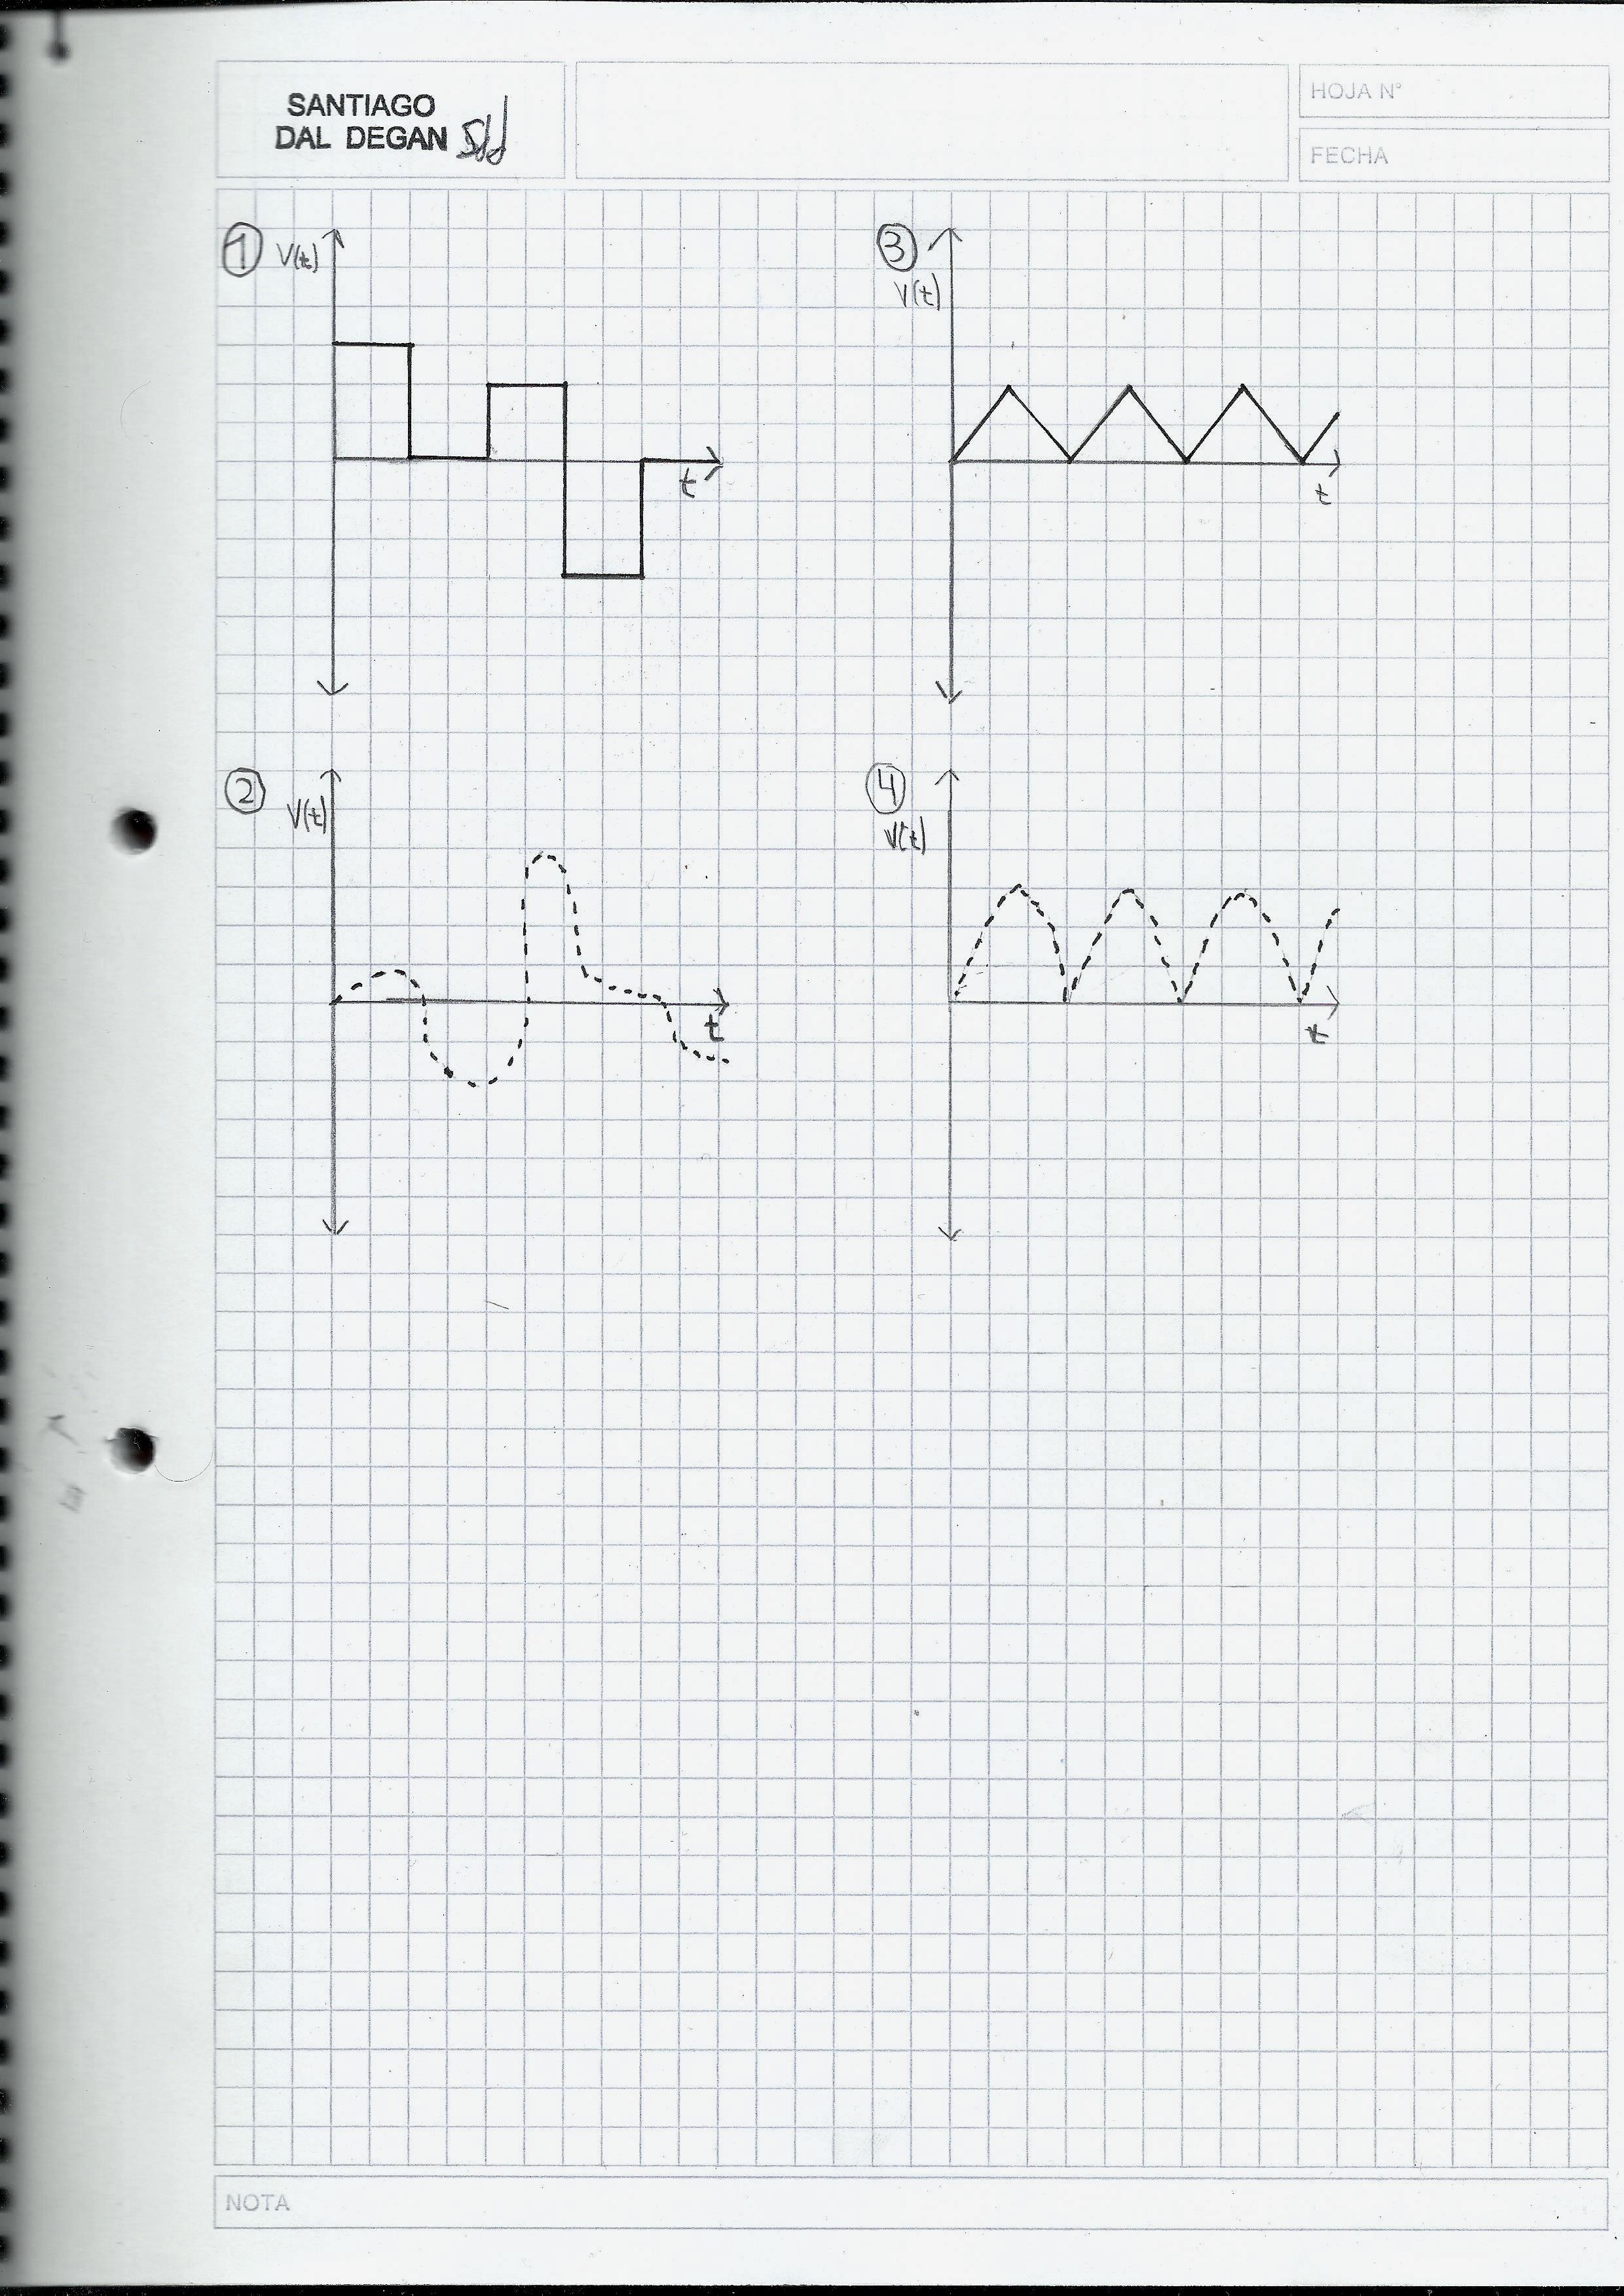 SANTIAGO
DAL DEGAN
HOJA N°
FECHA
1 V(t)
t
3
V(t)
t
2 V(t)
t
4
V(t)
t
NOTA